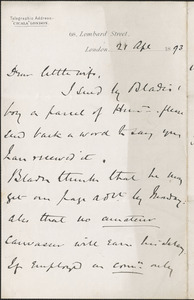 Telegraphic Address:
60, Lombard Street,
London, 28 Apr 1893
Dear little wife,
I send by Blades'
boy a parcel of
send back a word to say you
have received it.
Blades thinks that he may
get one page advt. by Tuesday
also that no amateur
Canvasser will earn his salary
If employed on comn. only